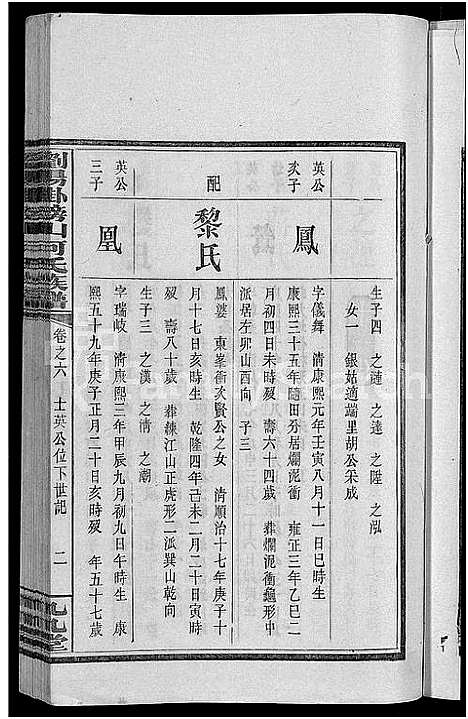 生子四 之漣 之達 之陞 之泓
女一 銀姑適端里胡公朵成
英公
次子
鳳
字儀舞 清康熙元年壬寅八月十一日巳時生
康熙三十五年隨田分居爛泥衝 雍正三年乙巳二
月初四日未時歿 壽六十四歲 葬爛泥衝龜形中
派居左卯山酉向 子三
配
黎氏
鳳婆 東峯衝次賢公之女 清順治十七年庚子十
月十七日亥時生 乾隆四年己未二月二十日寅時
歿 壽八十歲 葬練江山正虎形二派巽山乾向
生子三 之漢 之清 之潮
英公
三子
凰
字瑞岐 清康熙三年甲辰九月初九日午時生 康
熙五十九年庚子正月二十日亥時歿 年五十七歲
劉陽掛榜山何氏族譜
卷之六 士英公位下世記 二
九九堂